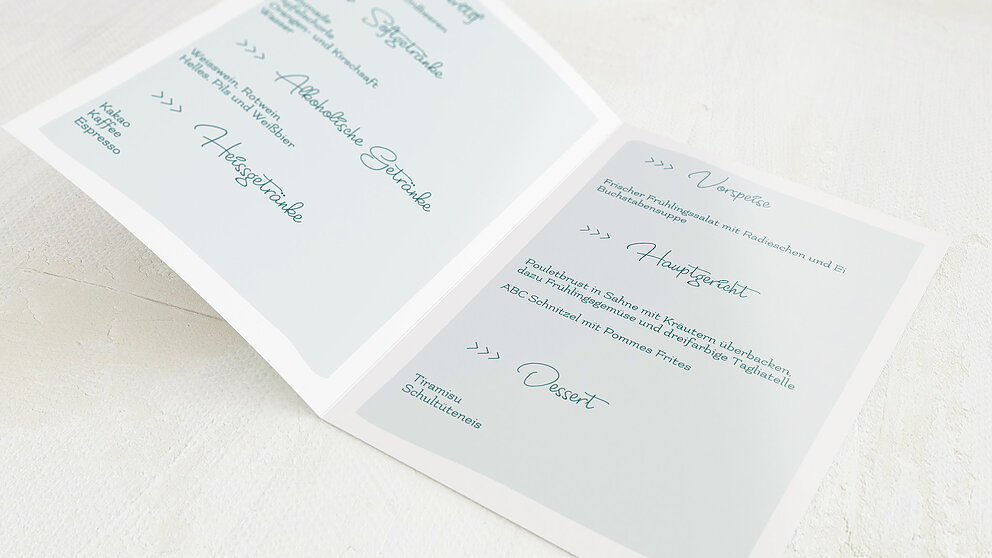 Softgetränke
Orangen- und Kirschsaft
Wasser
>>> Alkoholische Getränke
Weisswein, Rotwein
Helles, Pils und Weißbier
>>> Heissgetränke
Kakao
Kaffee
Espresso
>>> Vorspeise
Frischer Frühlingssalat mit Radieschen und Ei
Buchstabensuppe
>>> Hauptgericht
Pouletbrust in Sahne mit Kräutern überbacken,
dazu Frühlingsgemüse und dreifarbige Tagliatelle
ABC Schnitzel mit Pommes Frites
>>> Dessert
Tiramisu
Schultüteneis